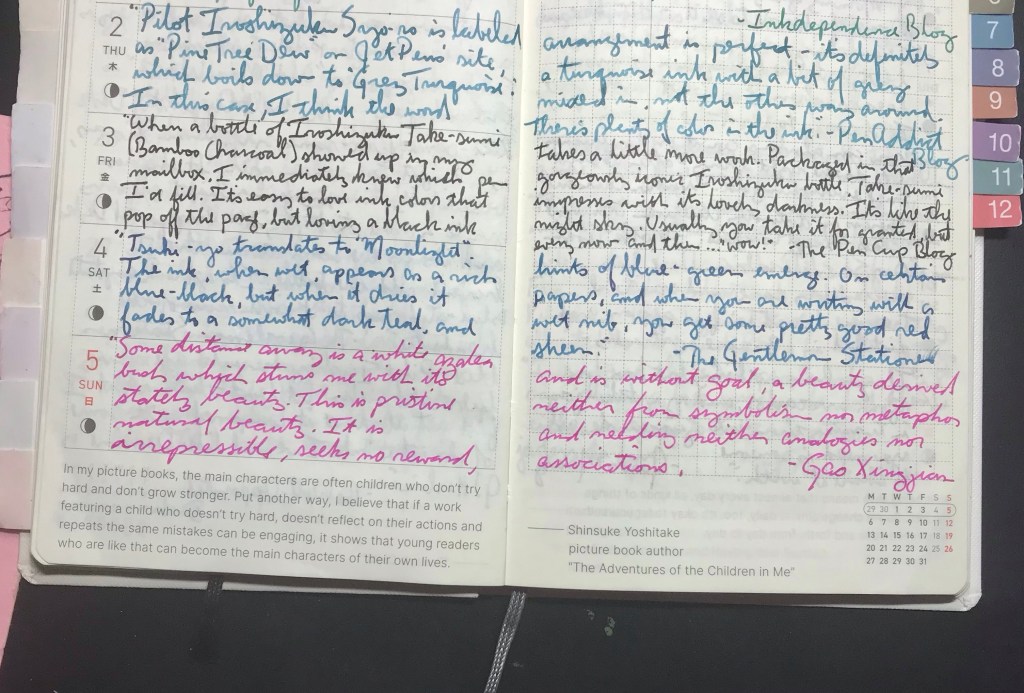 2
THU
木
"Pilot Iroshizuku Syo-ro is labeled
as "Pine Tree Dew" on JetPens site,
which boils down to Grey Turquoise.
In this case, I think the word
3
FRI
金
"When a bottle of Iroshizuku Take-sumi
(Bamboo Charcoal) showed up in my
mailbox, I immediately knew which pen
I'd fill. It's easy to love ink colors that
pop off the page, but loving a black ink
4
SAT
土
"Tsuki-yo translates to "Moonlight".
The ink, when wet, appears as a rich
blue-black, but when it dries it
fades to a somewhat dark teal, and
5
SUN
日
"Some distance away is a white azalea
bush which stuns me with its
stately beauty. This is pristine
natural beauty. It is
irrepressible, seeks no reward,
In my picture books, the main characters are often children who don't try
hard and don't grow stronger. Put another way, I believe that if a work
featuring a child who doesn't try hard, doesn't reflect on their actions and
repeats the same mistakes can be engaging, it shows that young readers
who are like that can become the main characters of their own lives.
-Inkdependence Blog
arrangement is perfect - its definitely
a turquoise ink with a bit of grey
mixed in, not the other way around.
There's plenty of color in the ink." -Pen Addict
Blog
takes a little more work. Packaged in that
gorgeously iconic Iroshizuku bottle, Take-sumi
impresses with its lovely darkness. It's like the
night sky. Usually you take it for granted, but
every now and then..."wow!" -The Pen Cup Blog
hints of blue-green emerge. On certain
papers, and when you are writing with a
wet nib, you get some pretty good red
sheen." -The Gentleman Stationer
and is without goal, a beauty derived
neither from symbolism nor metaphor
and needing neither analogies nor
associations. -Gao Xingjian
Shinsuke Yoshitake
picture book author
"The Adventures of the Children in Me"
M T W T F S S
29 30 1 2 3 4 5
6 7 8 9 10 11 12
13 14 15 16 17 18 19
20 21 22 23 24 25 26
27 28 29 30 31
7
8
9
10
11
12